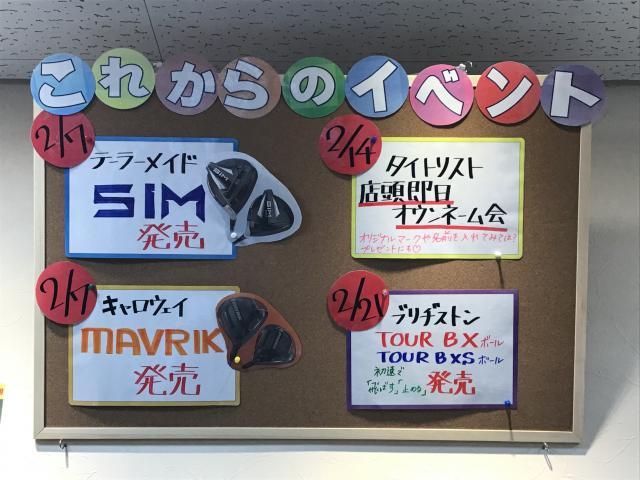 これからのイベント
2/7
テーラーメイド
SIM
発売
SIM
SIM
2/14
タイトリスト
店頭即日
オウンネーム会
オリジナルマークや名前を入れてみては?
プレゼントにも♡
2/7
キャロウェイ
MAVRIK
発売
2/21
ブリヂストン
TOUR BXボール
TOUR BXSボール
初速で
「飛ばす」「止める」
発売